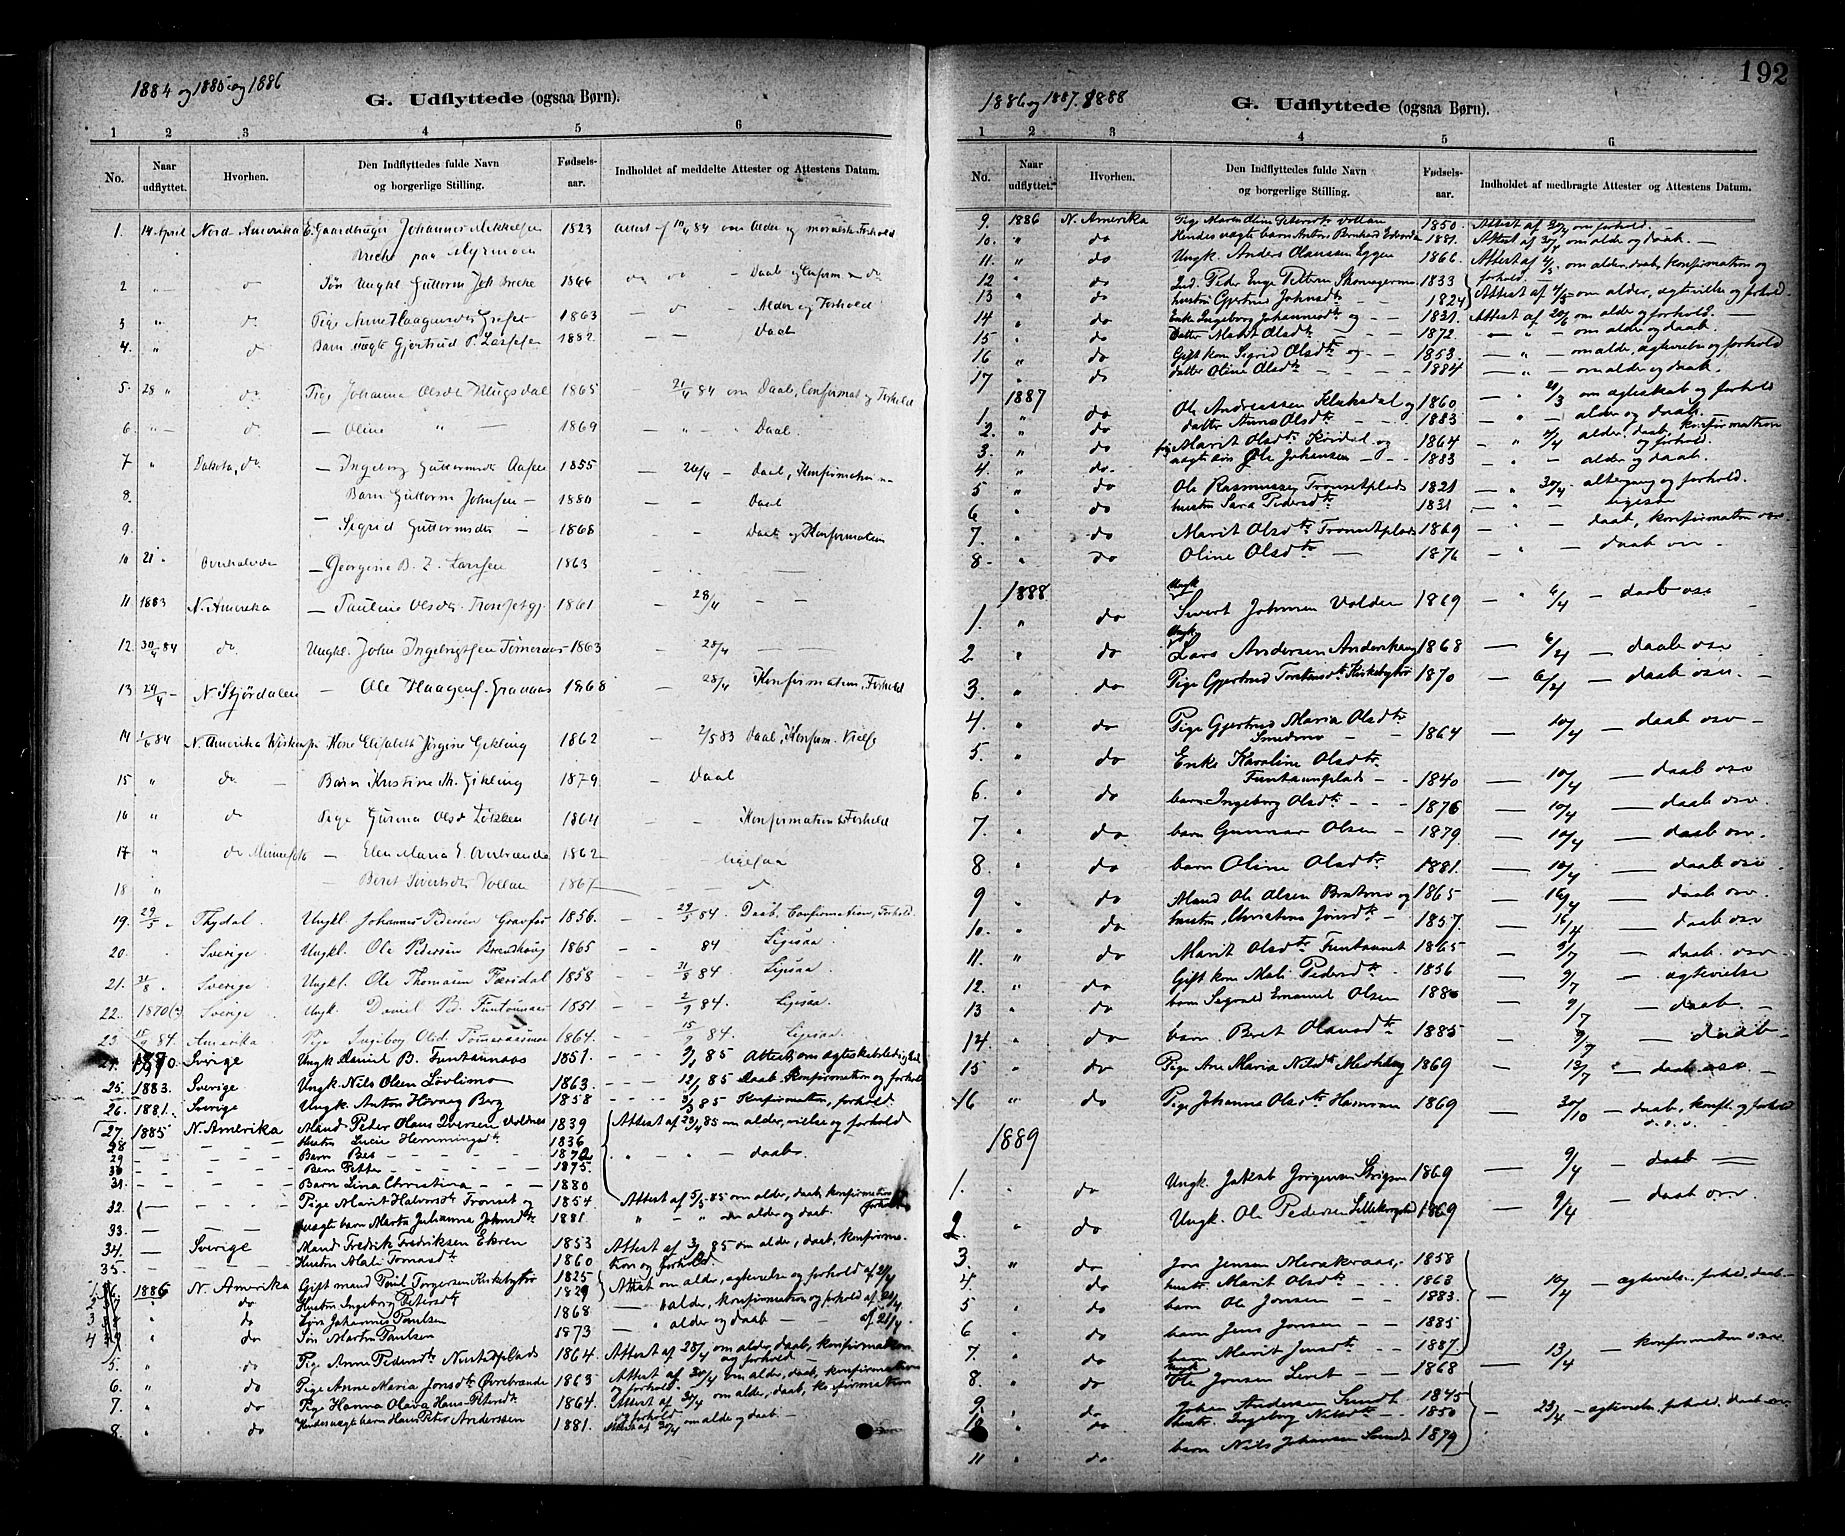 1884 og 1885 og 1886
G. Udflyttede (ogsaa Børn).
1 2 3 4 5 6
No. Naar udflyttet. Hvorhen. Den Indflyttedes fulde Navn og borgerlige Stilling. Fødsels-aar. Indholdet af meddelte Attester og Attestens Datum.
1. 14 April Nord Amerika Gaardbruger Johannes Mikkelsen 1823 Attest af 10/4 84 om Alder og moralsk Forhold
Brecke paa Myrmoen
2 " — do Søn Ungkl Guttorm Joh Brecke 1866 do do — Daab og Confirm — do
3 " — do Pige Anne Haagensdr 1863 — do Alder og Forhold
4. " do Barn uægte Gjertrud P. Larssen 1882 — — Daab
5. 28 " do Pige Johanna Olsdr Klugsdal 1865 — 21/4 84 om Daab, Confirmat og Forhold
6 " — do — Oline " — 1869 — " — " — Daab.
7 " Dakota, do — Ingeborg Guttormsdr Aasen 1855 — 26/4 — Daab, Konfirmation
8. Barn Guttorm Johnsen — 1880 — — Daab
9. — Sigrid Guttormsdr — 1868 — — Daab og Konfirmation
10 21 " Overhalvden — Georgine B. Z. Larssen 1863 — —
11 1883 N. Amerika — Pauline Olsdr Tronsetpl 1861 — 28/4 — —
12. 30/4 84 do. Ungkl. John Ingebrigtsen Tømmeraas 1863 28/4 — —
13 29/4 — N. Stjørdalen — Ole Haagens. Granaas 1868 — 28/4 Konfirmation, Forhold
14 1/5 84 N. Amerika Kone Elisabeth Jørgine Gikling 1862 2/5 83 Daab, Konfirm. Vielse
15 " do — Barn Kristine M. Gikling 1879 — Daab
16 " do Pige Gurina Olsd 1864 Konfirmation & Forhold
17 " do Minnesota — Elen Maria E. Overbrænde 1862 — — ligesaa
18 " — Beret Sivertsdr Vollan 1867 — — d
19. 29/5 Thydal. Ungkl. Johannes Pedersen Gravsø 1856. — — 29/5 84. Daab, Confirmation, Forhold.
20. Sverige Ungkl. Ole Pedersen Brendhaug 1865 — — 84 Ligesaa
21. 31/8 Sverige. Ungkl Ole Thomasen Færidal 1858 — — 31/8 84 Ligesaa.
22. 1870 Sverige Ungk. Daniel Funtaunaas 1851 — — 2/9 84. Ligesaa
23. 15/9 84 Amerika Pige Ingeborg Olsd. Tømeraasmoen 1864. — — 15/9 84. Ligesaa.
24. 1870 Sverige Ungk Daniel B. Funtaunaas 1851. — — 3/1 85 Attest om ægteskabsledighed
25. 1883. Sverige Ungk. Nils Olsen Løvlimo 1863. — — 12/1 85 Daab, Konfirmation og forhold
26. 1881. Sverige Ungk. Anton Hovaag Berg 1858 — — 3/3 85 Konfirmation, forhold
27. 1885 N. Amerika Mand Peder Olaus Iversen Voldnes 1839 Attest af 23/4 85 om alder, vielse og forhold
28 — — Hustru Lucie Hemmingsdt 1836
29 — — Barn 1872 " — " — daab.
30 — — Barn Petter — 1875.
31. — — Barn Lina Christina — 1880
32. — — Pige Marit Halvorsdt Tronset og 1854 Attest af 5/5 85 om alder, daab, konfirmation forhold
33. uægt barn Marta Julianna Johnsdt 1881. " — " om alder og daab.
34. — Sverige Mand Fredrik Fredriksen Ekren 1853 Attest af 3/ 85 om alder, daab, konfirma-
35. — Hustru Mali Tomasdt 1860 tion og forhold.
1. 1886 N. Amerika Gift mand Poul Torgersen Kirkebytrø 1825 Attest om alder, ægtevielse og forhold af 21/4
2 " do Hustru Ingeborg Petersdt 1829
3 " do Søn Johannes Paulsen 1868 — " alder, konfirmation og forhold af 21/4
4 " do Søn Martin Paulsen 1873 — " alder og daab — af 21/4
5. " do Pige Anne Pedersdt Nustadplads 1864 Attest af 28/4 om alder, daab, konfirmation og forhold —
6. " do Pige Anne Maria Jonsdt Øvrebrænde 1863 Attest af 30/4 om alder, daab, konfirmation og forhold.
7. " do Pige Hanna Olava Hans-Petersdt 1864. Attest af 30/4 om alder, daab, konfirmation og forhold
8. " do Hindes uægt barn Hans Peter Anderssen 1881. Attest af 30/4 om alder og daab —
192
1886 og 1887. 1888
G. Udflyttede (ogsaa Børn).
1 2 3 4 5 6
No. Naar udflyttet. Hvorhen. Den Indflyttedes fulde Navn og borgerlige Stilling. Fødsels-aar. Indholdet af medbragte Attester og Attestens Datum.
9. 1886 N. Amerika Pige Maren Oline Petersdt Vollan 1850. Attest af 30/4 om forhold. —
10. " do Hendes uægte barn Anton Bernhard Edvards 1881. Attest af 30/4 om alder og daab. —
11. " do Ungk. Anders Olaussen Eggen 1866. Attest af 4/5 om alder, daab, konfirmation og forhold —
12 " do Ind. Peder Inge Pettersen 1833 Attest af 4/5 om alder, ægtevielse og forhold
13 " do hustru Gjertrud Johnsdt — 1824
14 " do Enke Ingeborg Johannesdt og — 1821. Attest af 20/6 om alder og forhold. —
15 " do Datter Marit Olsdt — 1872. — " — om alder og daab.
16 " do Gift kone Sigrid Olsdt og — 1853. — " — om alder, ægtevielse og forhold
17 " do datter Oline Olsdt — 1884 — " — om alder og daab.
1887
1. " do Ole Andreassen Kluksdal og 1860 — " 21/3 om ægteskab og forhold
2. " do datter Anna Olsdt. — 1883 " — alder og daab —
3. " do pige Marit Olsdt. Kirdal og 1864 — " 4/4 alder, daab, konfirmation og forhold.
4. " do. uægt søn Ole Johansen — 1883 " — alder og daab.
5 " do Ole Rasmussen Tronsetplads 1821 — " 30/4 altergang og forhold.
6 " do hustru Sara Pedersdt 1831 " — ligesaa
7. " do Marit Olsdt Tronsetplads 1869 — " — daab, konfirmation osv
8. " do Oline Olsdt — 1876 " — daab osv
1888
1. " do Ungk Sivert Johnsen Volden 1869 — " 6/4 — daab osv
2 " do Ungk Lars Andersen Andershaug 1868 — 6/4 — daab osv
3. " do Pige Gjertrud Torstensdt Kirkebytrø 1870 — 6/4 — daab osv
4. " do Pige Gjertrud Maria Olsdt Smedmo — 1864 10/4 — daab osv —
5. " do Enke Karoline Olsdt. Funtaunplads — 1840 — 10/4 — daab osv
6. " do barn Ingeborg Olsdt — 1876 — 10/4 — daab osv.
7. " do barn Gunnar Olsen — 1879. — 10/4 — daab osv.
8. " do barn Oline Olsdt. 1881. — 10/4 — daab osv
9 " do Mand Ole Olsen Bratmo og 1865 — 16/4 — daab osv.
10. " do hustru Christine Jonsdt — 1857. — 16/4 — daab osv
11. " do Marit Olsdt Funtaunet 1865 — 9/7 — daab osv —
12. " do Gift kone Mali Pedersdt — 1856 — 9/7 — ægtevielse
13 " do barn Sigvald Emanuel Olsen 1880 — 9/7 — daab —
14. " do barn Beret Olausdt — 1885 — 9/7 — daab —
15 " do Pige Ane Maria Nilsdt 1869 — 12/7 — daab osv —
16 " do Pige Johanna Olsdt 1869 — 30/10 — daab, konf. og forhold
1889
1. " do Ungk. Jakob Jørgensen 1869 — 9/4 — daab —
2. " do Ungk. Ole Pedersen 1869 — 9/4 — daab osv.
3. " Jon Jensen Merakeraas, 1858
4. " do hustru Marit Olsdt — 1868 10/4 — ægtevielse, forhold, daab
5 " do barn Ole Jonsen — 1883.
6 " do barn Jens Jonsen — 1885
7. " do barn Marit Jonsdt. 1887.
8. " do Ungk Ole Jonsen Leret — 1868 — 13/4 — konfirmation osv.
9. " do Johan Andersen Sundt 1845
10 " do hustru Ingeborg Nilsdt — 1850 — 23/4 — ægtevielse, forhold, daab osv.
11 " do barn Nils Johansen Sundt 1879